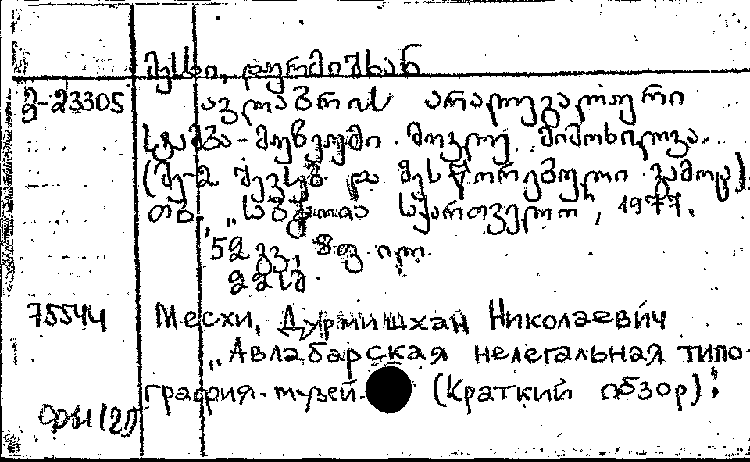 მესხი, დურმიშხან
გ-23305 ავლაბრის არალეგალური
სტამბა-მუზეუმი. მოკლე მიმოხილვა.
(მე-2 შევსებ. და შესწორებული გამოც.)
თბ., „საბჭოთა საქართველო", 1977.
52 გვ., 8 ფ. ილ.
22 სმ.
75544 Месхи, Дурмишхан Николаевич
„Авлабарская нелегальная типо-
графия-музей. (Краткий обзор).